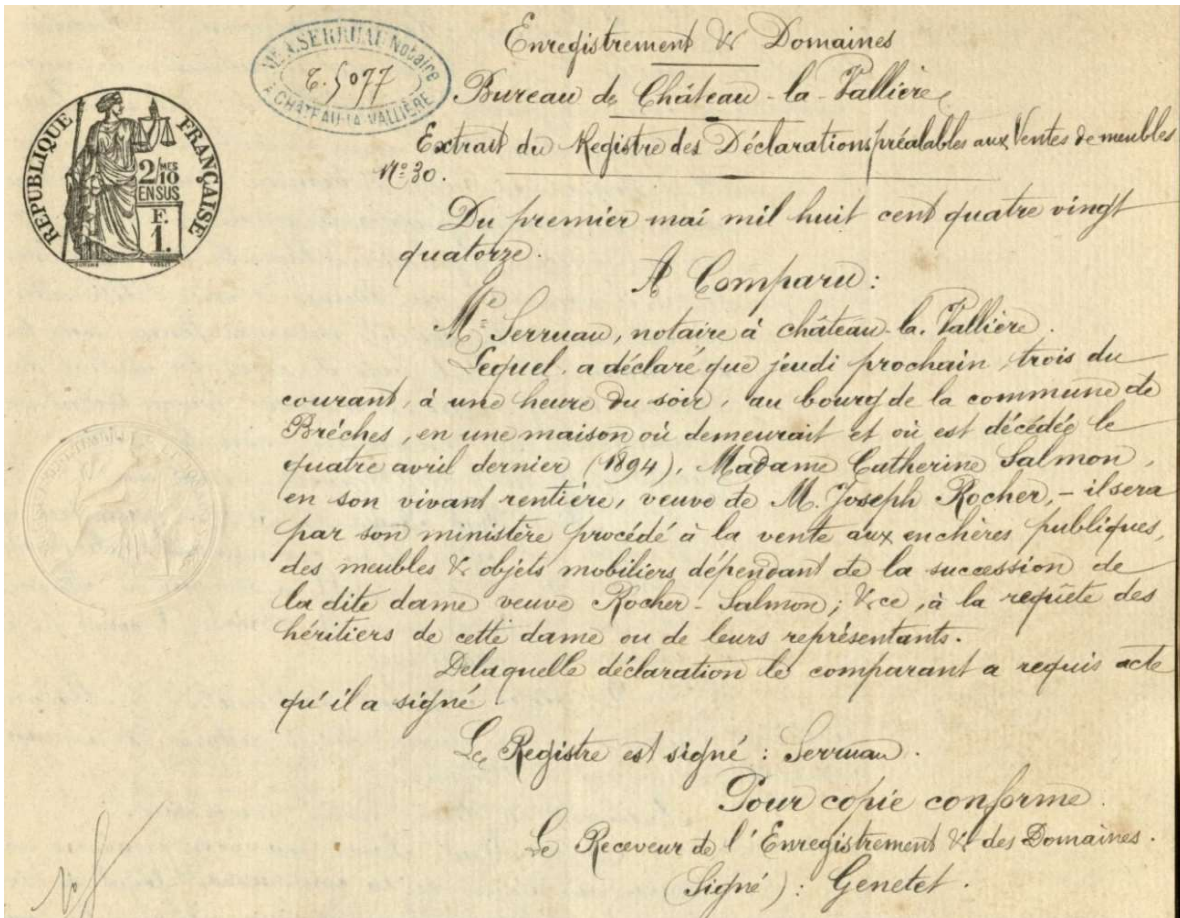 Enregistrement & Domaines
Mᵉ A. SERRUAU Notaire
A CHATEAU-LA-VALLIÈRE
5077
Bureau de Château-la-Vallière
REPUBLIQUE FRANÇAISE
2/10 MES
EN SUS
F.
1.
Extrait du Registre des Déclarations préalables aux Ventes de meubles
Nº 30.
Du premier mai mil huit cent quatre vingt
quatorze.
A Comparu :
Mᵉ Serruau, notaire à château-la-Vallière.
Lequel, a déclaré que jeudi prochain, trois du
courant, à une heure du soir, au bourg de la commune de
Brèches, en une maison où demeurait et où est décédée le
quatre avril dernier (1894), Madame Catherine Salmon,
en son vivant rentière, veuve de M. Joseph Rocher, - il sera
par son ministère procédé à la vente aux enchères publiques,
des meubles & objets mobiliers dépendant de la succession de
la dite dame veuve Rocher-Salmon; & ce, à la requête des
héritiers de cette dame ou de leurs représentants.
De laquelle déclaration le comparant a requis acte
qu'il a signé
Le Registre est signé : Serruau.
Pour copie conforme.
Le Receveur de l'Enregistrement & des Domaines.
(Signé) : Genetet.